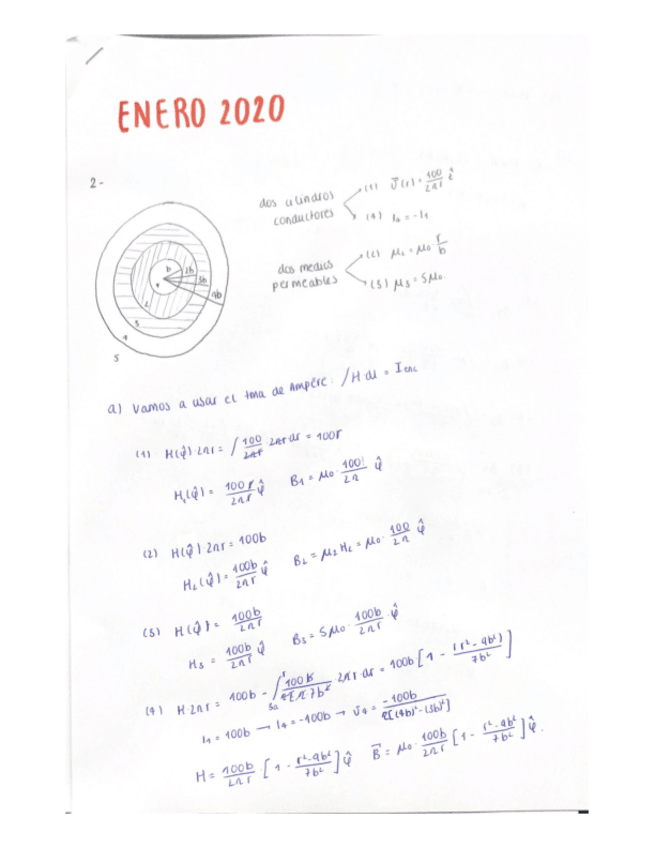 ENERO 2020
2-
dos cilindros conductores
(1) J⃗(r) = 100/2πr ẑ
(4) I₄ = -I₁
dos medios permeables
(2) μ₂ = μ₀ r/b
(3) μ₃ = 5μ₀
b 2b 3b 4b
1
2
3
4
5
a) Vamos a usar el tma de Ampère: ∫H·dl = I enc
(1) H(φ̂)·2πr = ∫ 100/2πr · 2πr dr = 100r
H₁(φ̂) = 100r/2πr φ̂ B₁ = μ₀· 100/2π φ̂
(2) H(φ̂)·2πr = 100b
H₂(φ̂) = 100b/2πr φ̂ B₂ = μ₂H₂ = μ₀· 100/2π φ̂
(3) H(φ̂) = 100b/2πr
H₃ = 100b/2πr φ̂ B₃ = 5μ₀· 100b/2πr ·φ̂
(4) H·2πr = 100b - ∫ 100b/π7b² 2πr·dr = 100b [1 - (r²-9b²)/7b²]
I₁ = 100b → I₄ = -100b → J₄ = -100b/π[(4b)²-(3b)²]
H = 100b/2πr [1 - r²-9b²/7b²] φ̂ B⃗ = μ₀· 100b/2πr [1 - r²-9b²/7b²] φ̂.